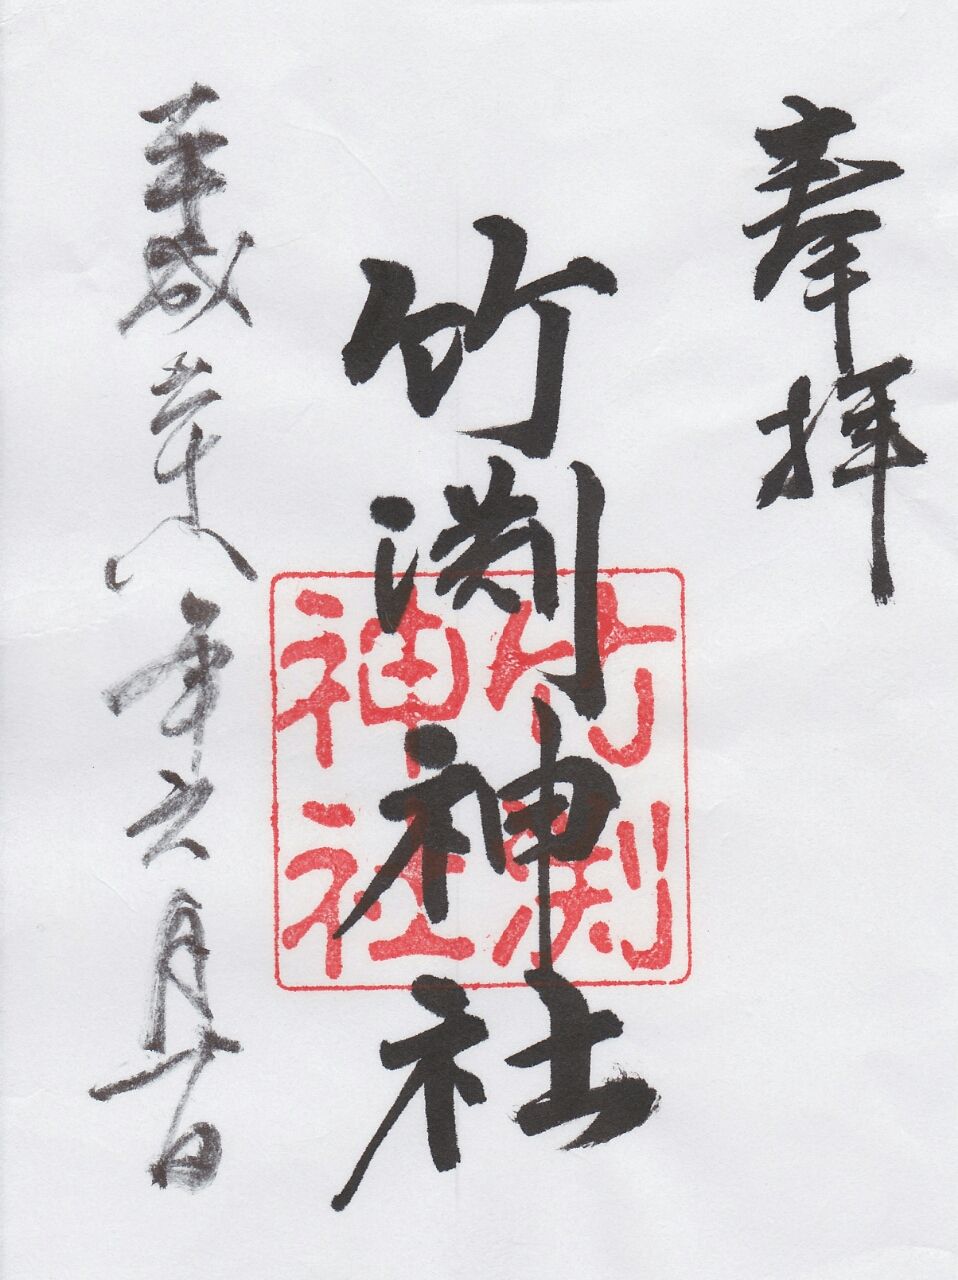 奉拝
竹渕神社
竹渕
神社
平成 八年六月 日